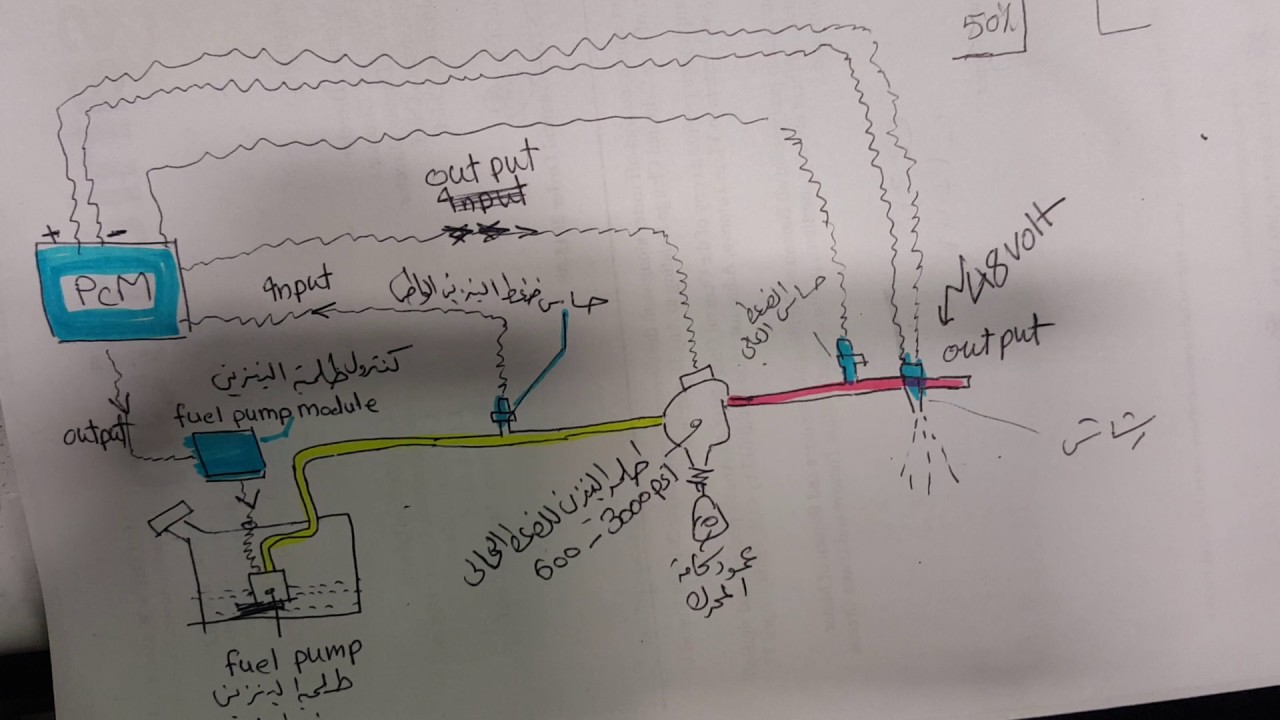 50%
output
+ -
PCM
Input
حساس ضغط البنزين الواطي
48 volt
output
حساس الضغط العالي
كنترول طلمبة البنزين
fuel pump module
output
رشاش
طلمبة البنزين للضغط العالي
600 - 3000 psi
عمود كامة
المحرك
fuel pump
طلمبة البنزين